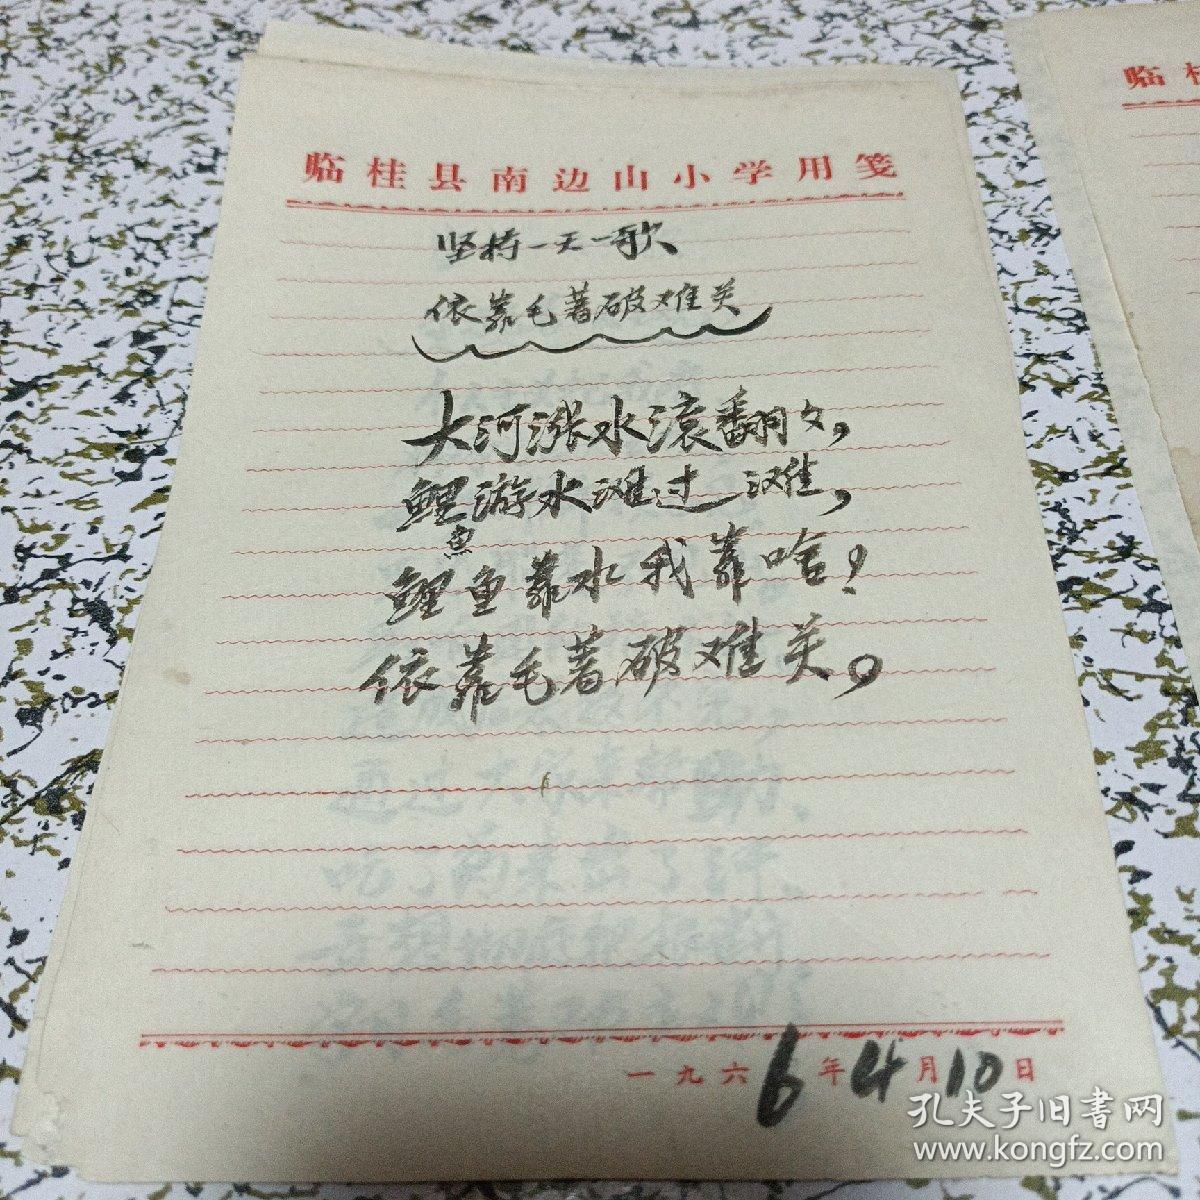 临桂县南边山小学用笺
坚持一天一歌
依靠毛著破难关
大河涨水滚翻々,
鲤鱼游水滩过滩,
鲤鱼靠水我靠啥?
依靠毛著破难关。
一九六6年4月10日
临桂
孔夫子旧书网
www.kongfz.com